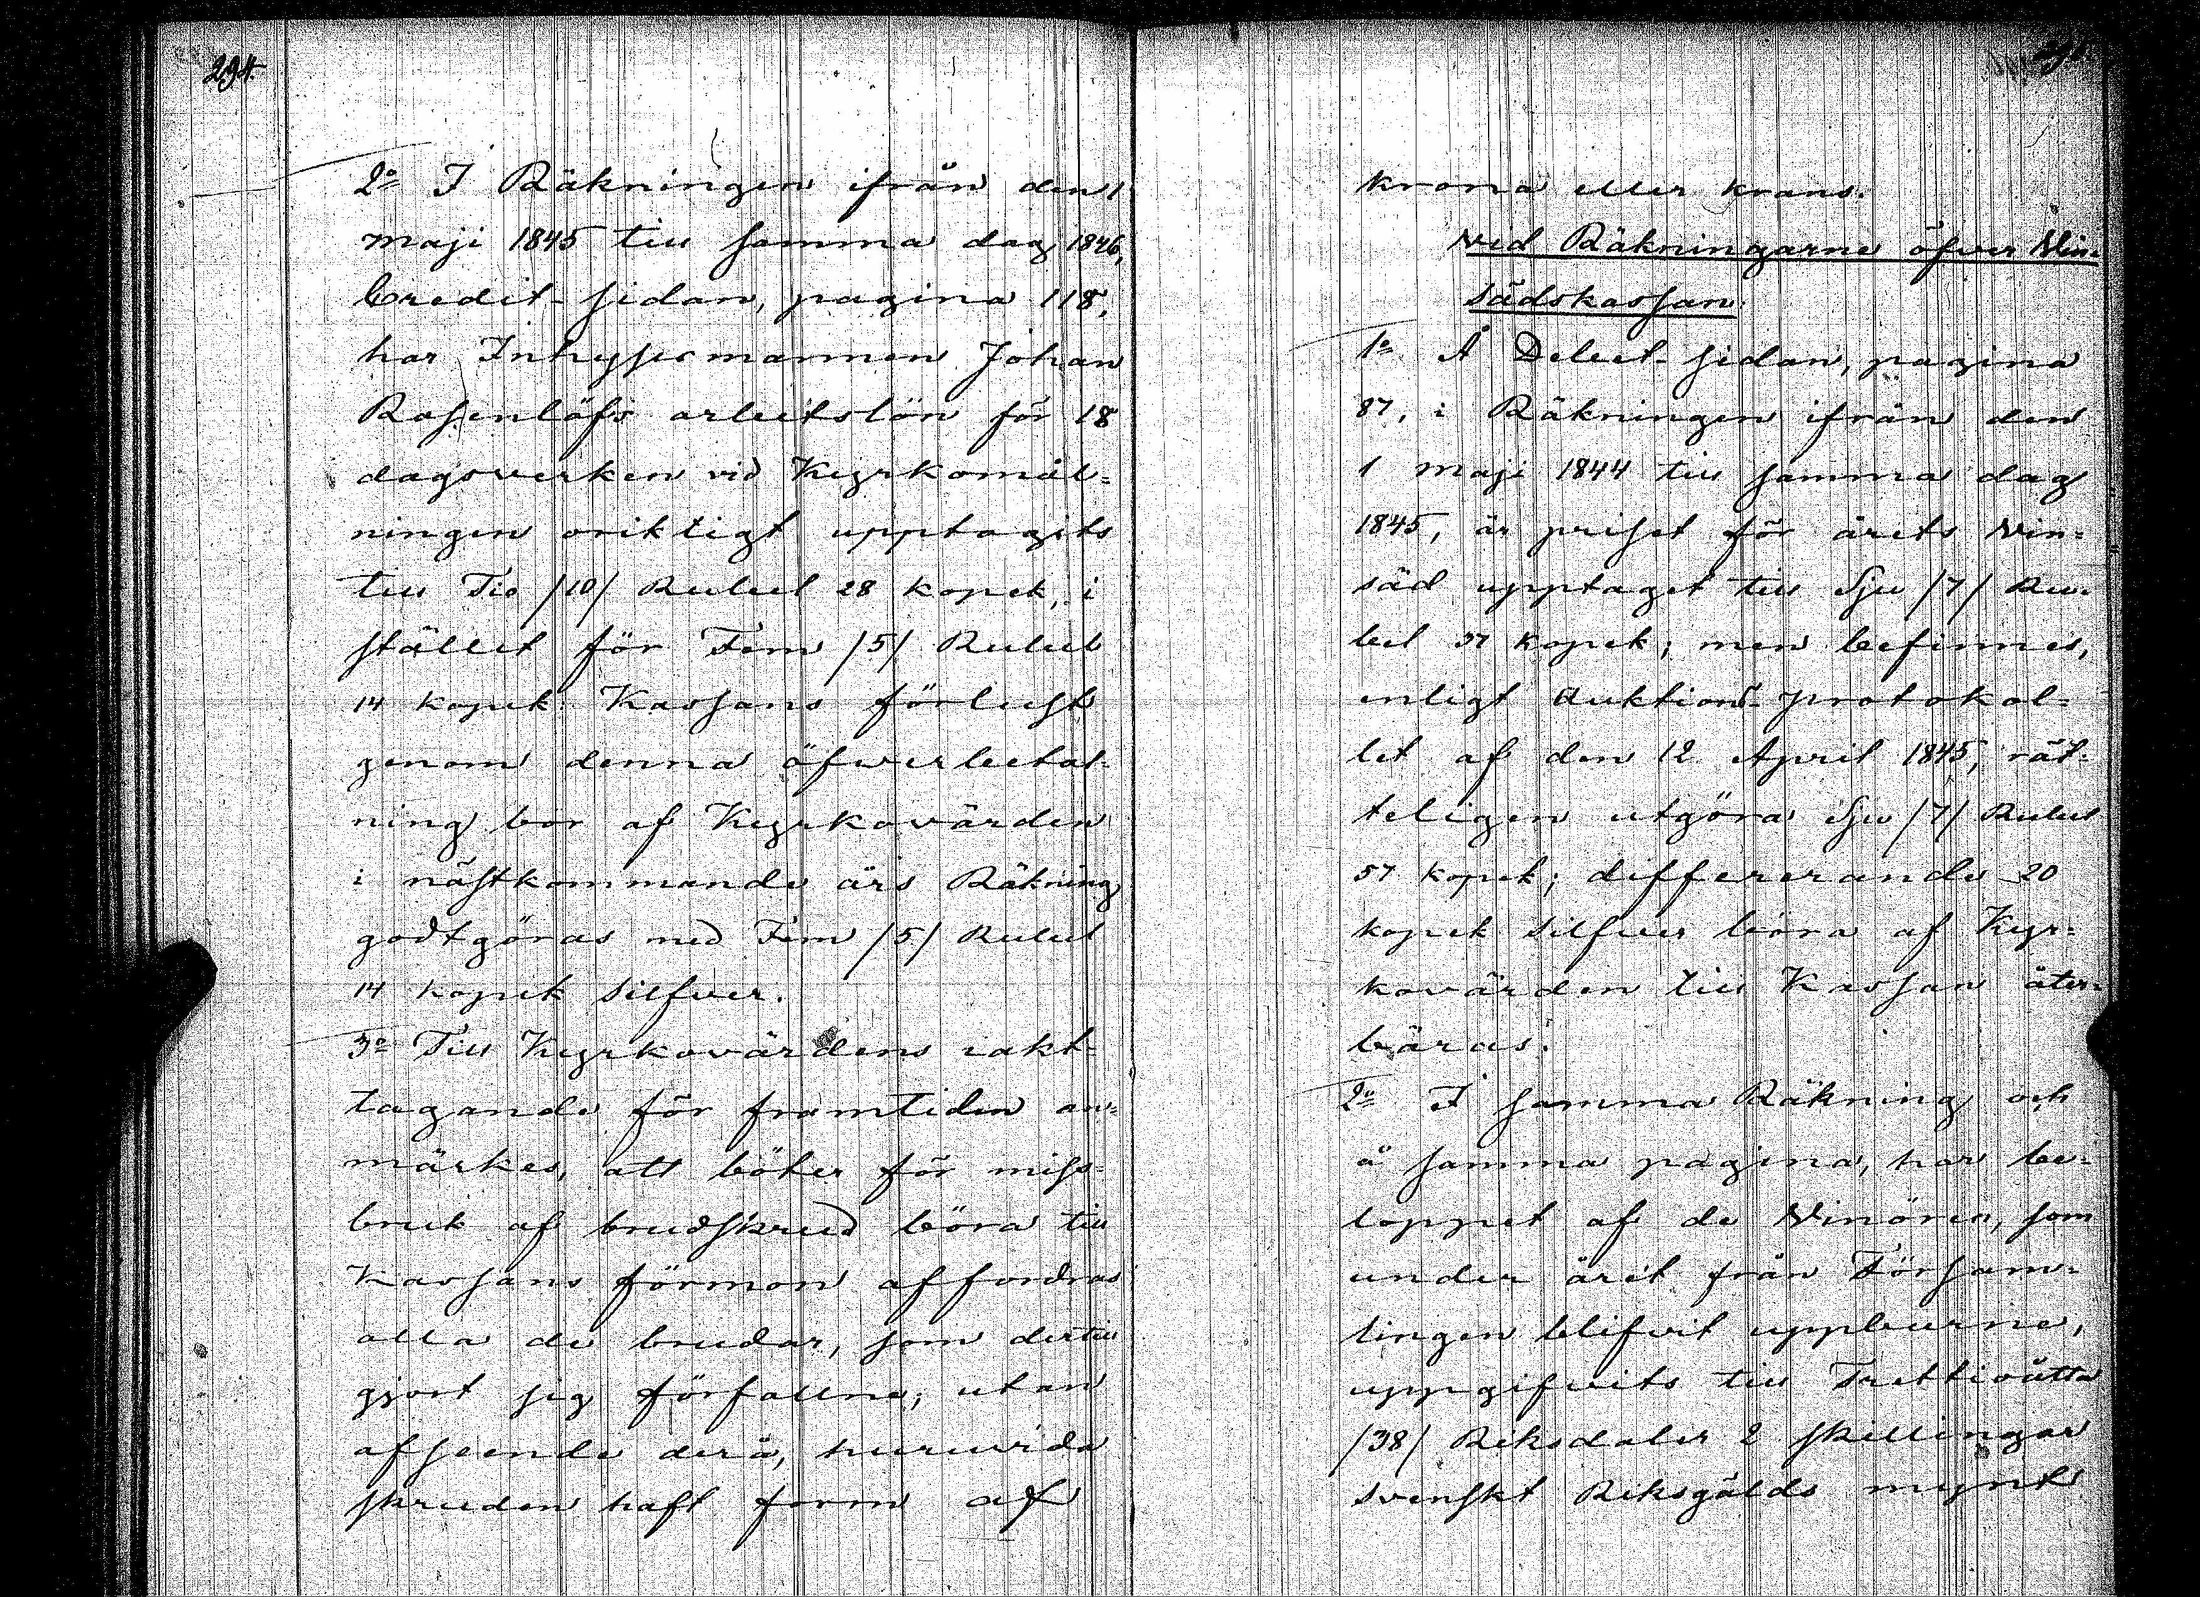 294.
2:o I Räkningen ifrån den 1
maji 1845 till samma dag 1846,
Credit-sidan, pagina 118,
har Inhysesmannen Johan
Rosenlöfs arbetslön för 18
dagsverken vid Kyrkomål=
ningen oriktigt upptagits
till Tio /10/ Rubel 28 kopek, i
stället för Fem /5/ Rubel
14 kopek. Kassans förlust
genom denna öfverbetal-
ning bör af Kyrkovärden
i nästkommande års Räkning
godtgöras med Fem /5/ Rubel
14 kopek silfver.
3:o Till Kyrkovärdens iakt-
tagande för framtiden an=
märkes, att böter för miss-
bruk af brudskrud böra till
Kassans förmon affordras
alla de brudar, som dertill
gjort sig förfallne; utan
afseende derå, huruvida
skruden haft form af
krona eller krans.
Vid Räkningarne öfver Vin=
sädskassan.
1:o Å Debet-sidan, pagina
87, i Räkningen ifrån den
1 maji 1844 till samma dag
1845, är priset för årets Vin=
säd upptaget till Sju /7/ Ru=
bel 37 kopek; men befinnes,
enligt Auktions-protokol=
let af den 12 April 1845, rät-
teligen utgöra Sju /7/ Rubel
57 kopek; differerande 20
kopek silfver böra af Kyr=
kovärden till Kassan åter=
bäras.
2:o I samma Räkning och
å samma pagina, har be=
loppet af de Vinören, som
under året från Försam=
lingen blifvit uppburne,
uppgifvits till Trettioåtta
/38/ Riksdaler 2 skillingar
svenskt Riksgälds mynt